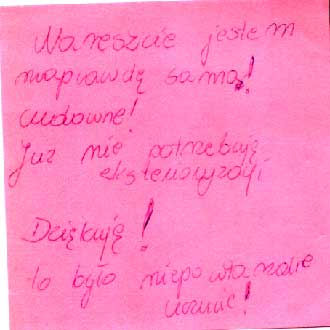 Nareszcie jestem
naprawdę sama!
cudowne!
Już nie potrzebuję
Dziękuję!
to było niepowtarzalne